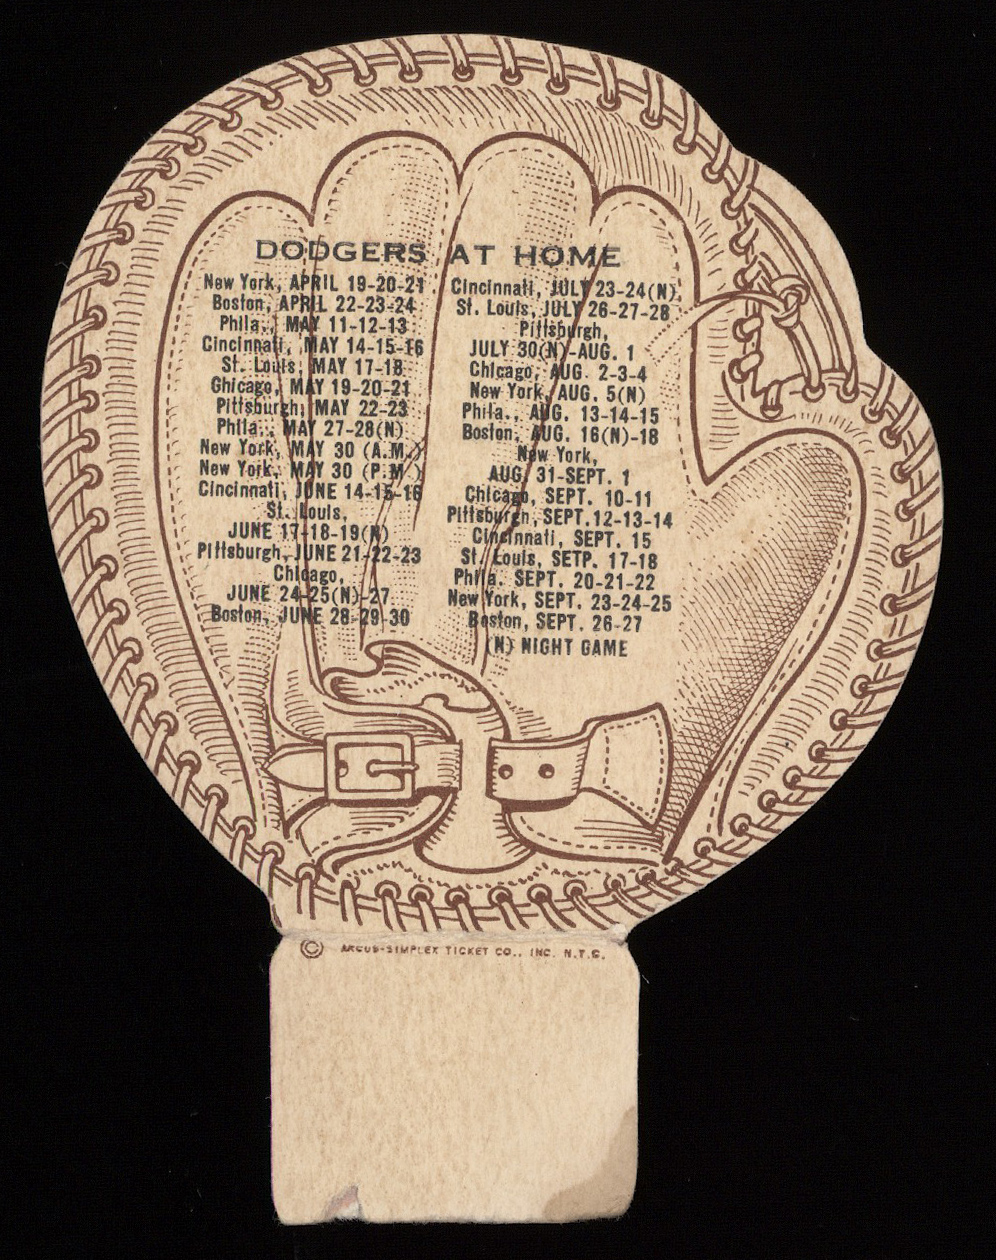 DODGERS AT HOME
New York, APRIL 19-20-21
Boston, APRIL 22-23-24
Phila., MAY 11-12-13
Cincinnati, MAY 14-15-16
St. Louis, MAY 17-18
Chicago, MAY 19-20-21
Pittsburgh, MAY 22-23
Phila., MAY 27-28(N)
New York, MAY 30 (A.M.)
New York, MAY 30 (P.M.)
Cincinnati, JUNE 14-15-16
St. Louis,
JUNE 17-18-19(N)
Pittsburgh, JUNE 21-22-23
Chicago,
JUNE 24-25(N)-27
Boston, JUNE 28-29-30
Cincinnati, JULY 23-24(N)
St. Louis, JULY 26-27-28
Pittsburgh,
JULY 30(N)-AUG. 1
Chicago, AUG. 2-3-4
New York, AUG. 5(N)
Phila., AUG. 13-14-15
Boston, AUG. 16(N)-18
New York,
AUG. 31-SEPT. 1
Chicago, SEPT. 10-11
Pittsburgh, SEPT.12-13-14
Cincinnati, SEPT. 15
St. Louis, SETP. 17-18
Phila. SEPT. 20-21-22
New York, SEPT. 23-24-25
Boston, SEPT. 26-27
(N) NIGHT GAME
© ARCUS-SIMPLEX TICKET CO., INC. N.Y.C.